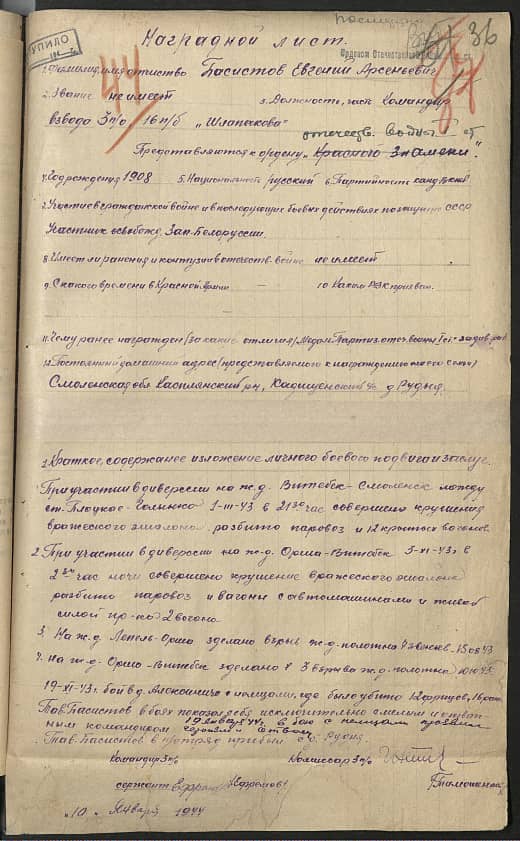 посмертно
36
УПИЛО
Орденом Отечествен
Наградной лист.
1. Фамилия, имя отчество Басистов Евгений Арсеньевич
2. Звание не имеет 3. Должность, часть Командир
взвода 3 п/о 16 п/б „Шлапакова"
отечеств. войны
Представляются к ордену „Красного Знамени".
4. Год рождения 1908 5. Национальность русский 6. Партийность
7. Участие в гражданской войне и в последующих боевых действиях по защите СССР
Участник освобожд. Зап. Белоруссии.
8. Имеет ли ранения и контузии в отечеств. войне не имеет
9. С какого времени в Красной Армии 10 Каким РВК призван.
11. Чему ранее награжден /за какие отличия/ Медаль Партиз. отеч. войны I ст.
12. Постоянный домашний адрес /представляемого к награждению и его семьи/
Смоленская обл. Касплянский рн, д. Рудня.
1. Краткое, содержание изложение личного боевого подвига и заслуг.
При участии в диверсии на ж.д. Витебск-Смоленск между
ст. Плоцкое-Голынки 1-III-43 в 21 час совершено крушение
вражеского эшалона разбито паровоз и 12 крытых вагонов.
2. При участии в диверсии на ж-д. Орша-Витебск 5-XI-43 г в
2 час ночи совершено крушение вражеского эшалона
разбито паровоз и вагоны с автомашинами и живой
силой пр-ка 2 вагона.
3. На ж.д. Лепель-Орша зделано взрыв ж-д-полотна
4. На ж.д. Орша-Витебск зделано 3 взрыва ж.д.-полотна
19-XI-43 г. бой в д. Алексиничи с немцами, где было убито 12 фрицов,
Тов. Басистов в боях показал себя исключительно смелым и отваж-
ным командиром 19 января 44 г. в бою с немцами
Тов. Басистов в п-отряд прибыл с д. Рудня
Командир 3 п/о Комиссар 3 п/о
сержант /Ефремов/ Тимошенков
„10" Января 1944